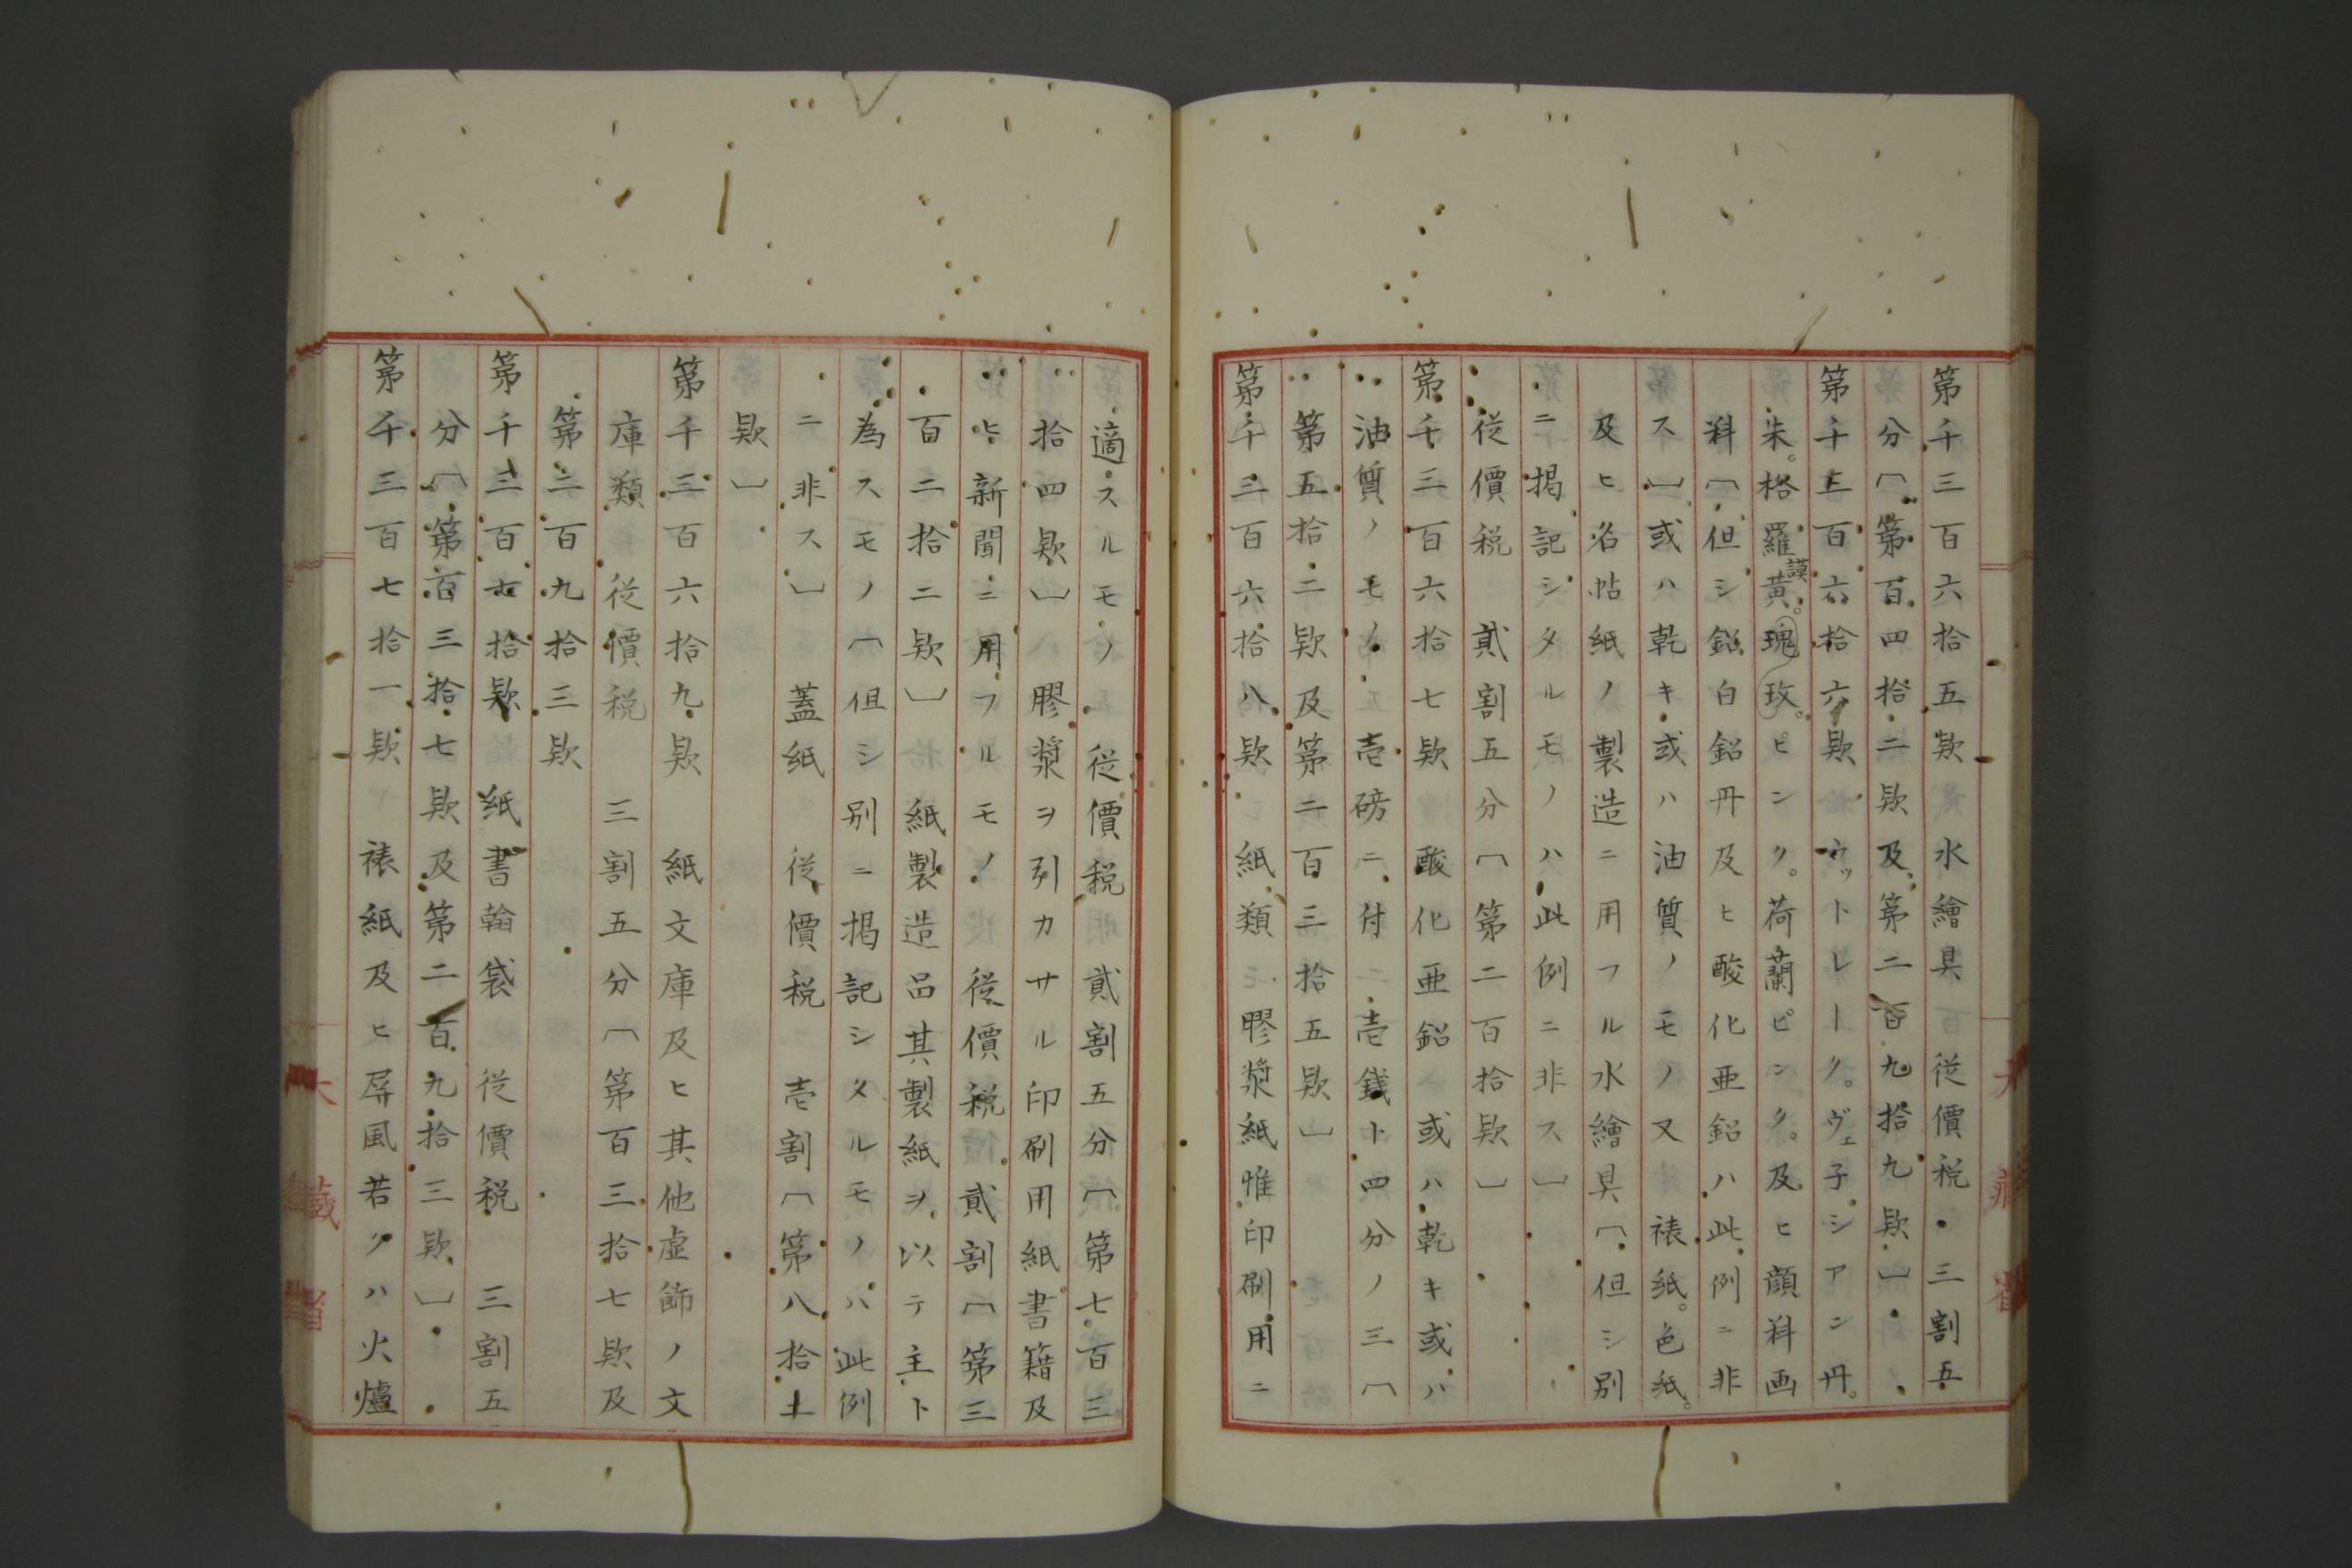 第千三百六拾五欵　水繪具　従價税　三割五
分〔第百四拾二欵及第二百九拾九欵〕
第千三百六拾六欵　ウットレーク。ヴェ子シアン丹。
朱。格羅謨黄。瑰玫。ピンク。荷蘭ピンク。及ヒ顔料画
料〔但シ鉛白鉛丹及ヒ酸化亜鉛ハ此例ニ非
ス〕或ハ乾キ或ハ油質ノモノ又　裱紙。色紙。
及ヒ名帖紙ノ製造ニ用フル水繪具〔但シ別
ニ掲記シタルモノハ此例ニ非ス〕
従價税　貳割五分〔第二百拾欵〕
第千三百六拾七欵　酸化亜鉛　或ハ乾キ或ハ
油質ノモノ　壱磅ニ付　壱錢ト四分ノ三〔
第五拾二欵及第二百三拾五欵〕
第千三百六拾八欵　紙類　膠漿紙惟印刷用ニ
適スルモノ　従價税　貳割五分〔第七百三
拾四欵〕　膠漿ヲ引カサル印刷用紙書籍及
ヒ新聞ニ用フルモノ　従價税　貳割〔第三
百二拾二欵〕　紙製造品其製紙ヲ以テ主ト
為スモノ〔但シ別ニ掲記シタルモノハ此例
ニ非ス〕　蓋紙　従價税　壱割〔第八拾土
欵〕
第千三百六拾九欵　紙文庫及ヒ其他虚飾ノ文
庫類　従價税　三割五分〔第百三拾七欵及
第二百九拾三欵
第千三百七拾欵　紙書翰袋　従價税　三割五
分〔第百三拾七欵及第二百九拾三欵〕
第千三百七拾一欵　裱紙及ヒ屏風若クハ火爐
大藏省